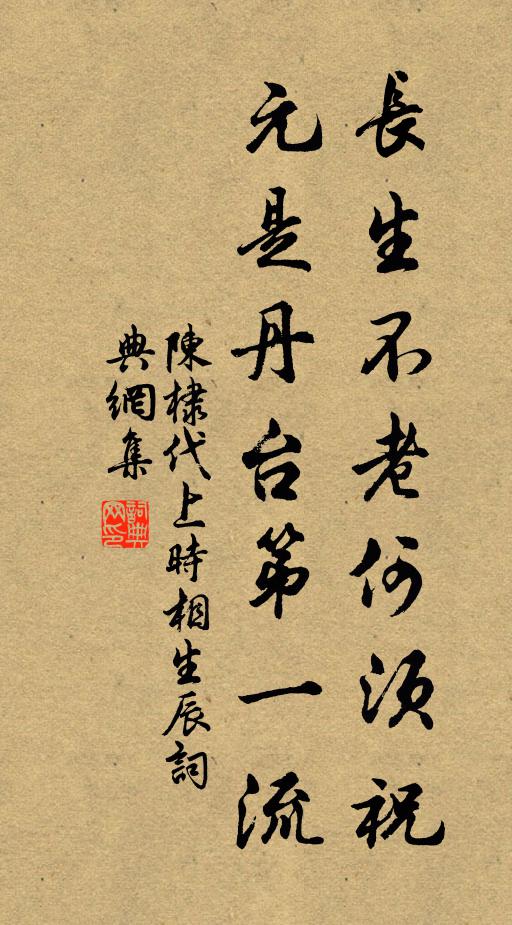 長生不老何須祝
元是丹台第一流
陳棣代上時相生辰詞
典網集
詞典網印